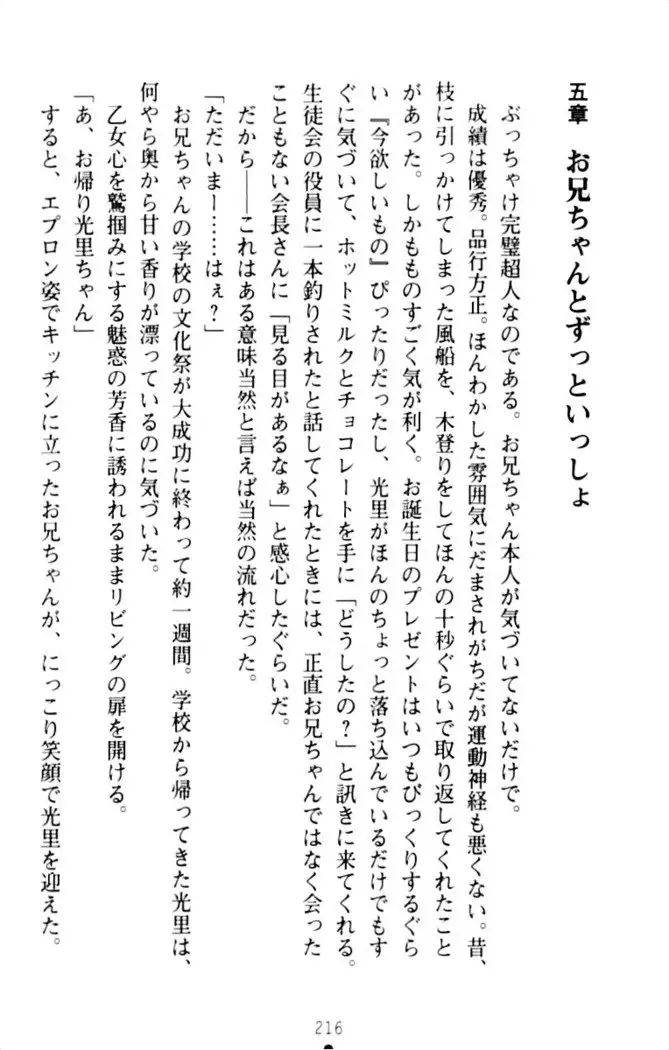 五章　お兄ちゃんとずっといっしょ
ぶっちゃけ完璧超人なのである。お兄ちゃん本人が気づいてないだけで。
成績は優秀。品行方正。ほんわかした雰囲気にだまされがちだが運動神経も悪くない。昔、
枝に引っかけてしまった風船を、木登りをしてほんの十秒ぐらいで取り返してくれたこと
があった。しかもものすごく気が利く。お誕生日のプレゼントはいつもびっくりするぐら
い『今欲しいもの』ぴったりだったし、光里がほんのちょっと落ち込んでいるだけでもす
ぐに気づいて、ホットミルクとチョコレートを手に「どうしたの？」と訊きに来てくれる。
生徒会の役員に一本釣りされたと話してくれたときには、正直お兄ちゃんではなく会った
こともない会長さんに「見る目があるなぁ」と感心したぐらいだ。
だから――これはある意味当然と言えば当然の流れだった。
「ただいまー……はぇ？」
お兄ちゃんの学校の文化祭が大成功に終わって約一週間。学校から帰ってきた光里は、
何やら奥から甘い香りが漂っているのに気づいた。
乙女心を鷲掴みにする魅惑の芳香に誘われるままリビングの扉を開ける。
「あ、お帰り光里ちゃん」
すると、エプロン姿でキッチンに立ったお兄ちゃんが、にっこり笑顔で光里を迎えた。
216